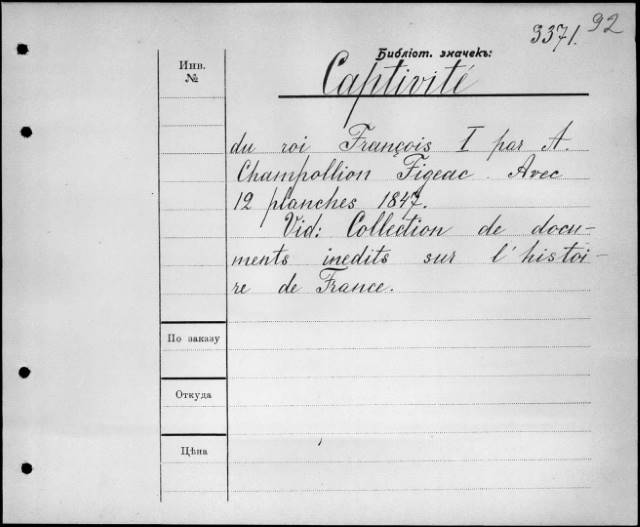 3371. 92
Библіот. значекъ:
Инв.
№
Captivité
du roi François I par A.
Champollion Figeac. Avec
12 planches 1847.
Vid: Collection de docu-
ments inedits sur l'histoi-
re de France.
По заказу
Откуда
Цѣна